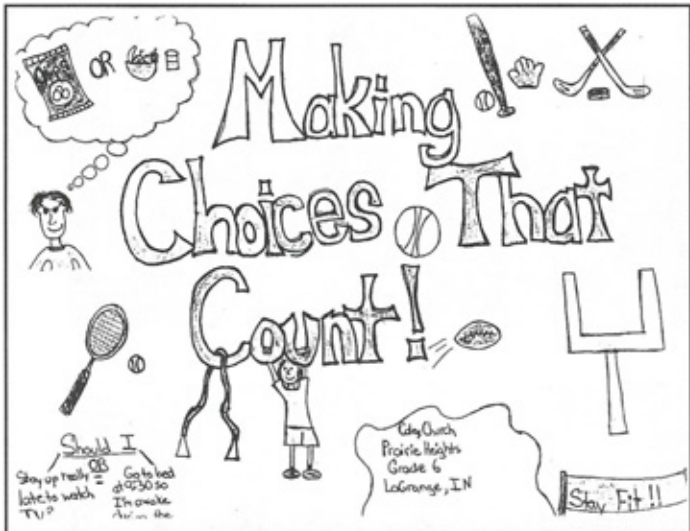 OR
Making
Choices That
Count!
Should I
Stay up really
late to watch
TV?
OR
Go to bed
at 9:30 so
I'm awake
Church
Prairie Heights
Grade 6
LaGrange, IN
Stay Fit!!